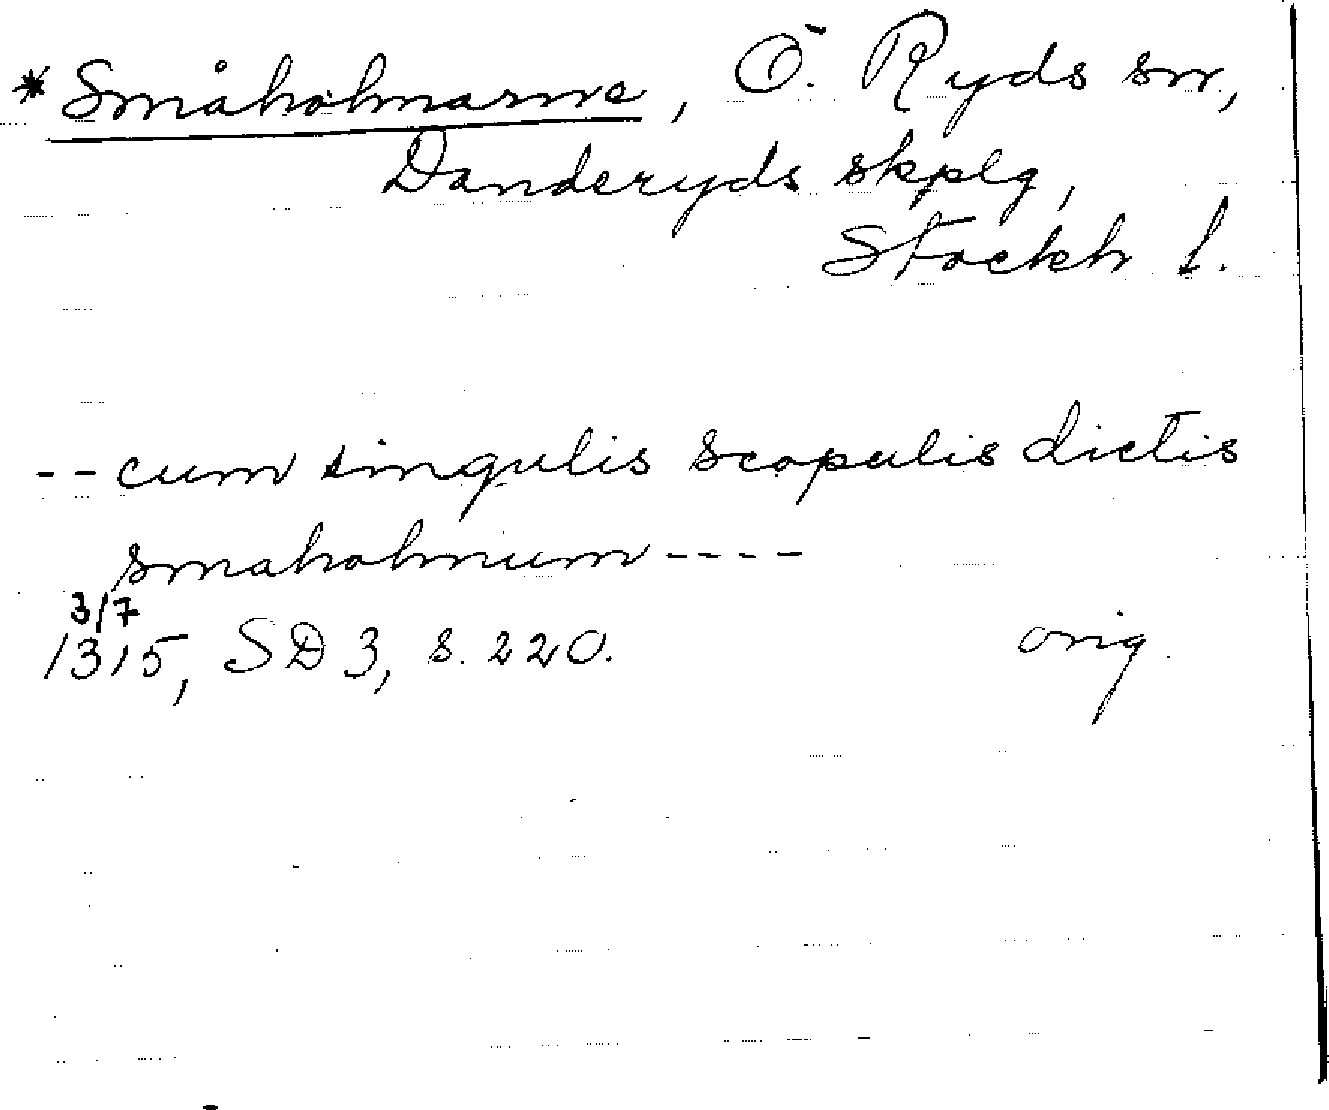 *Småholmarne, Ö. Ryds sn,
Danderyds skplg,
Stockh l.
-- cum singulis scopulis dictis
smaholmum ----
3/7
1315, SD 3, s. 220. orig.